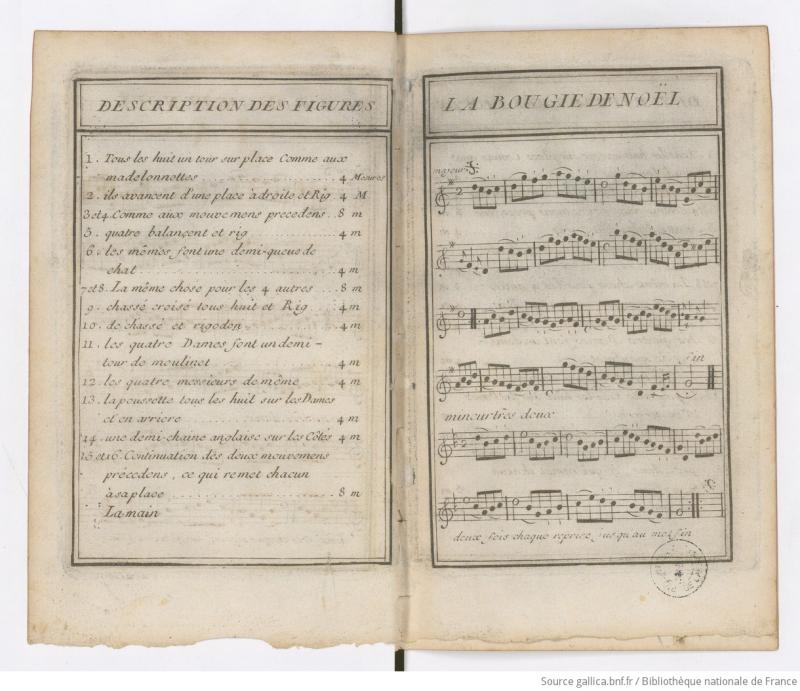 DESCRIPTION DES FIGURES
1. Tous les huit un tour sur place Comme aux
madelonnettes 4 Mesures
2. ils avancent d'une place à droite et Rig. 4 M
3 et 4. Comme aux mouvemens precedens.. 8 m
5. quatre balançent et rig 4 m
6. les mêmes font une demi-queue de
chat 4 m
7 et 8. La même chose pour les 4 autres ... 8 m
9. chassé croisé tous huit et Rig 4 m
10. de chassé et rigodon 4 m
11. les quatre Dames font un demi-
tour de moulinet 4 m
12. les quatre messieurs de même 4 m
13. la poussette tous les huit sur les Dames
et en arriere 4 m
14. une demi-chaine anglaise sur les Côtés 4 m
15 et 16. Continuation des deux mouvemens
précedens, ce qui remet chacun
à sa place 8 m
La main
LA BOUGIE DE NOËL
majeur
fin
mineur tres doux
deux fois chaque reprise jusqu'au mot fin
Source gallica.bnf.fr / Bibliothèque nationale de France